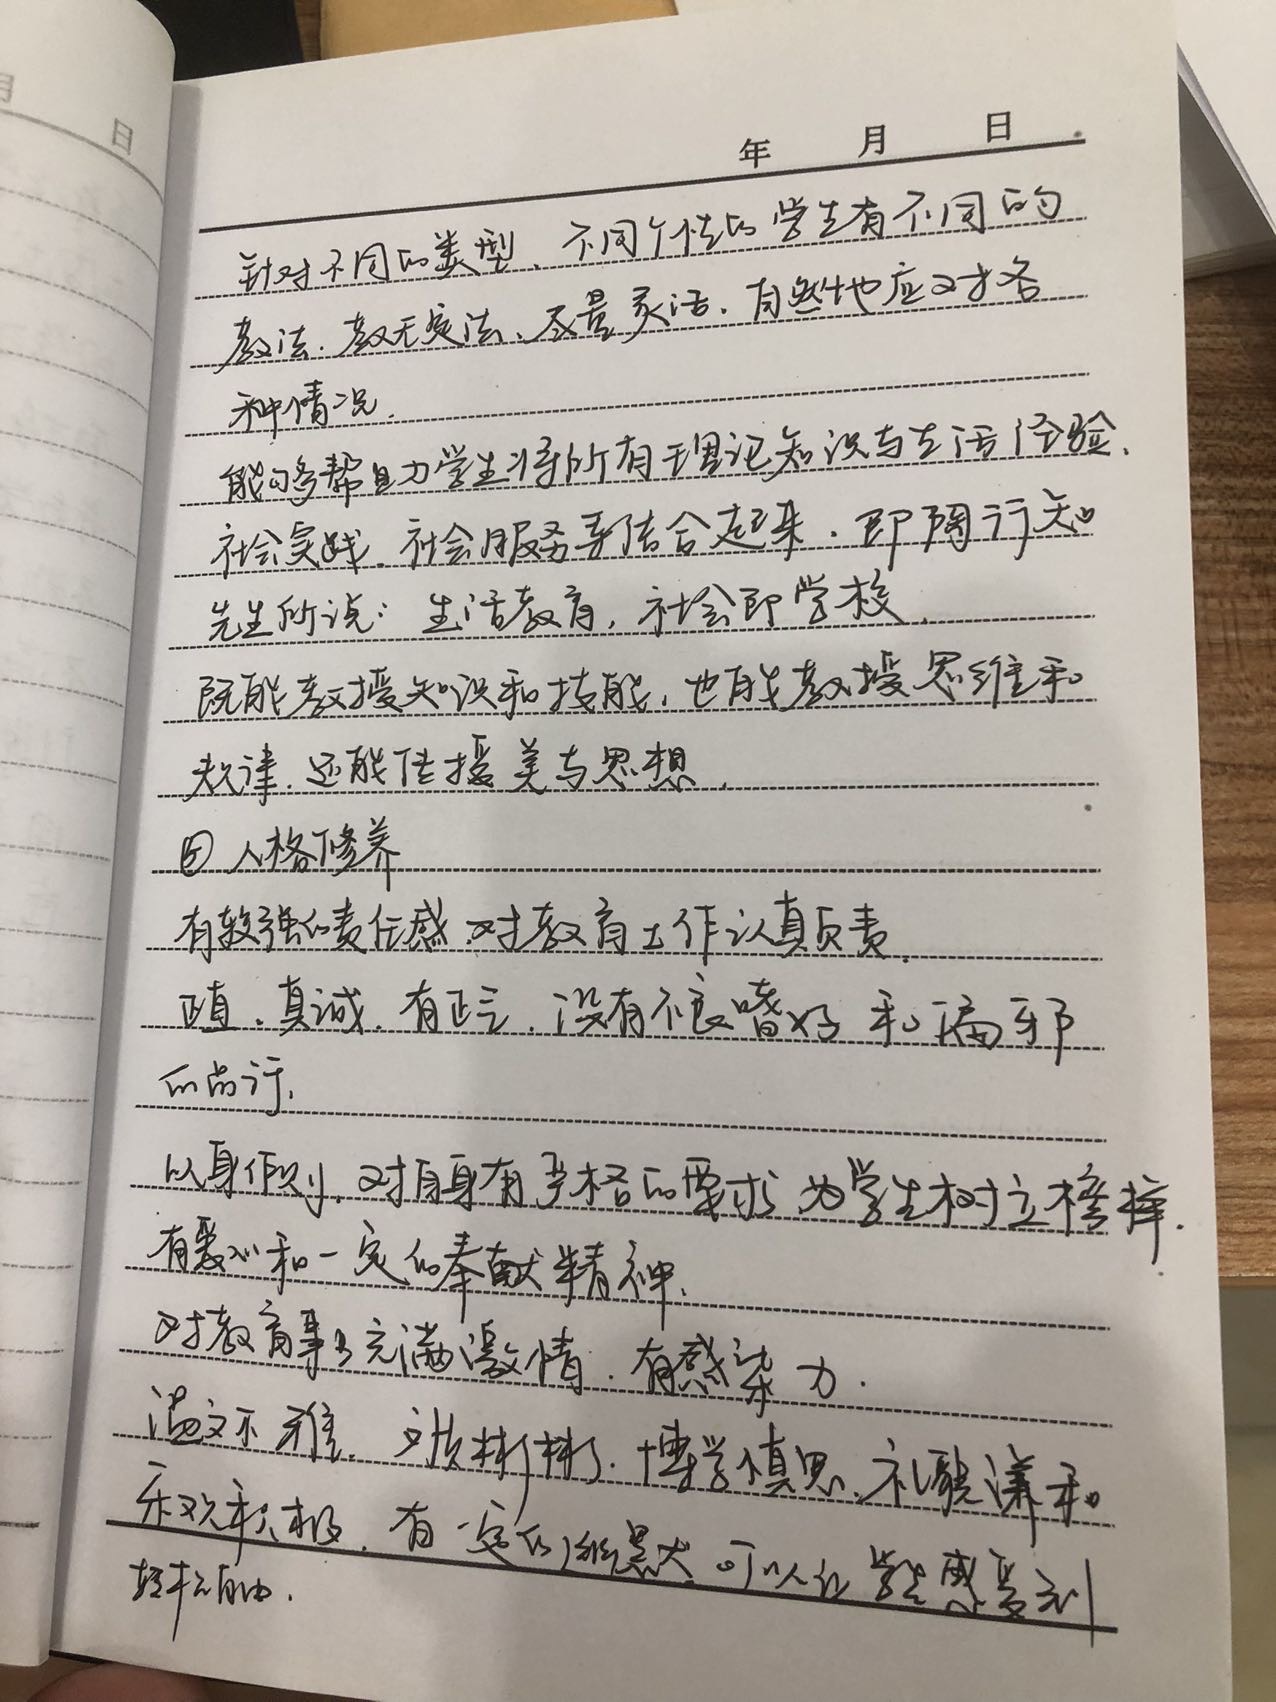 月 日
年 月 日
针对不同的类型、不同个性的学生有不同的
教法、教无定法、尽量灵活、自然地应对各
种情况.
能够帮助学生将所有理记知识与生活经验、
社会实践、社会服务等结合起来.即陶行知
先生所说:生活教育,社会即学校.
既能教授知识和技能,也能教授思维和
规律.还能传授美与思想.
④ 人格修养
有较强的责任感.对教育工作认真负责.
正直、真诚、有正言、没有不良嗜好和偏邪
的品行.
以身作则、对自身有严格的要求 为学生树立榜样.
有爱心和一定的奉献精神.
对教育事业充满激情.有感染力.
温文尔雅、文质彬彬、博学慎思、礼貌谦和
乐观积极、有一定的幽默 可以让学生感受到
轻松自由.